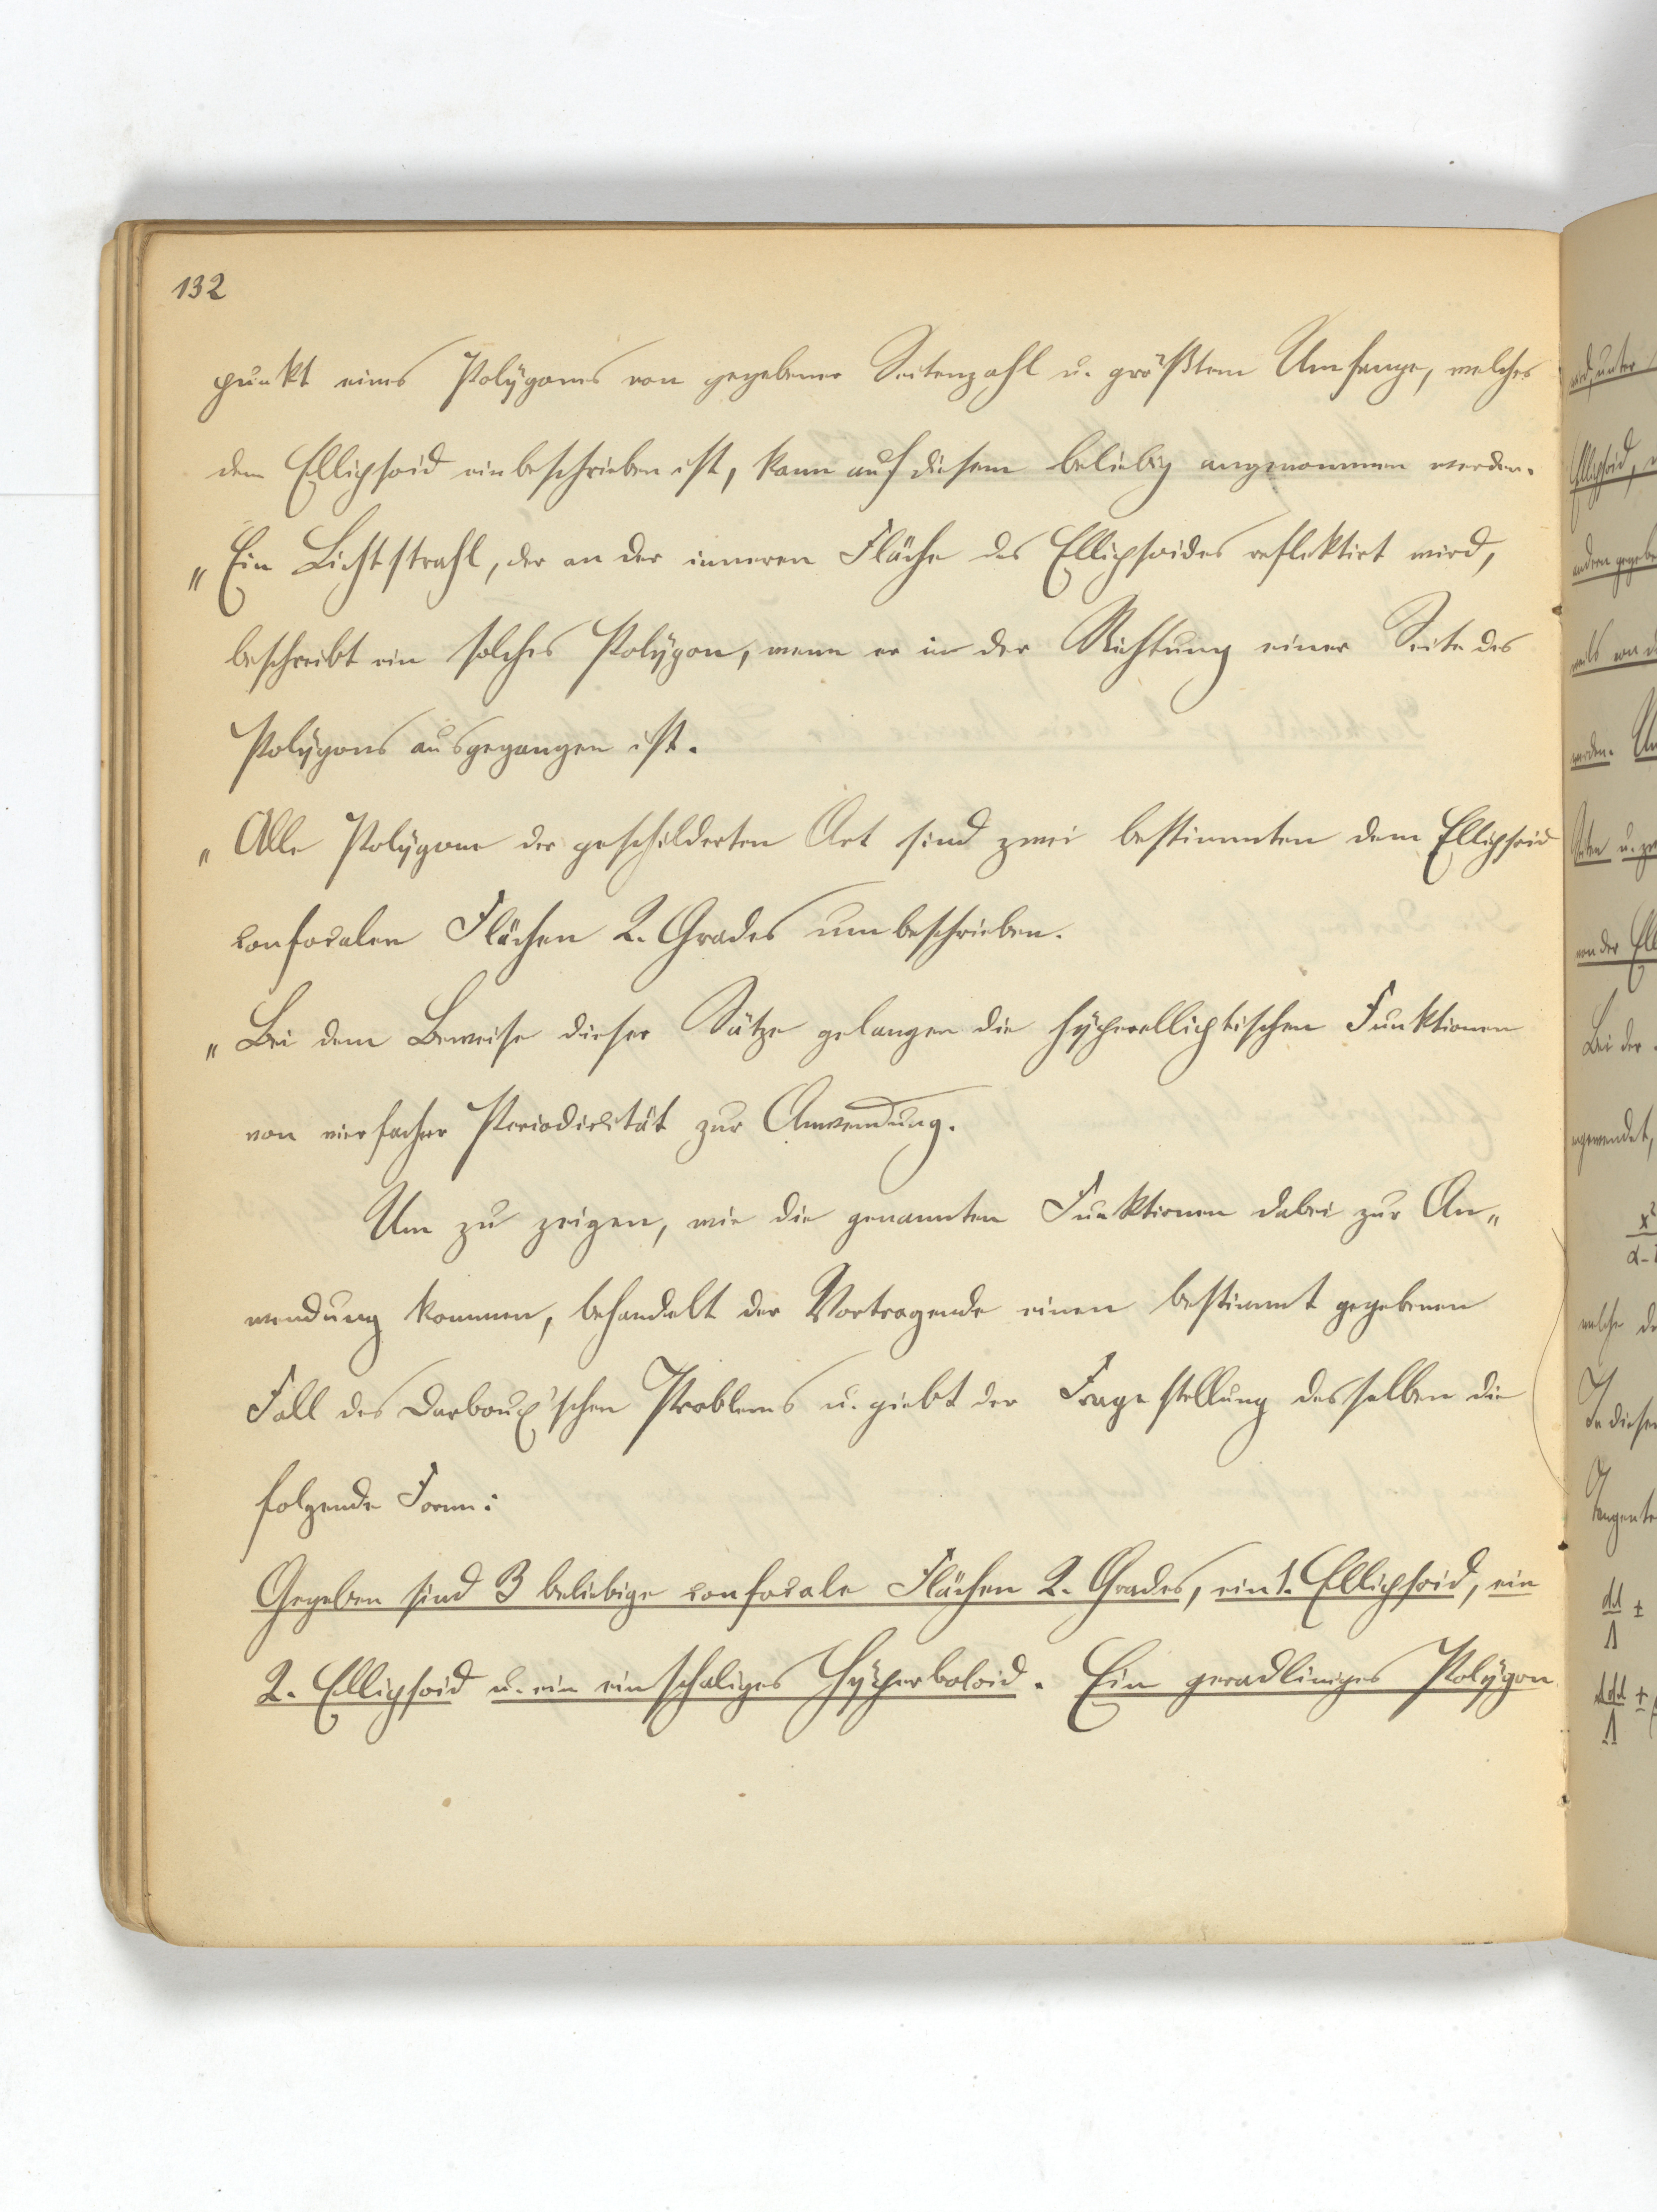 132
punkt eines Polygons von gegebener Seitenzahl u. größtem Umfange, welches
dem Ellipsoid einbeschrieben ist, kann auf diesem beliebig angenommen werden.
„ Ein Lichtstrahl, der an der inneren Fläche des Ellipsoides reflektirt wird,
beschreibt ein solches Polygon, wenn er in der Richtung einer Seite des
Polygons ausgegangen ist.
„ Alle Polygone der geschilderten Art sind zwei bestimmten dem Ellipsoid
confocalen Flächen 2. Grades umbeschrieben.
„ Bei dem Beweise dieser Sätze gelangen die hyperelliptischen Funktionen
von vierfacher Periodicität zur Anwendung.
Um zu zeigen, wie die genannten Funktionen dabei zur An„
wendung kommen, behandelt der Vortragende einen bestimmt gegebenen
Fall des Darboux'schen Problems u. giebt der Fragestellung desselben die
folgende Form:
Gegeben sind 3 beliebige confocale Flächen 2. Grades, ein 1. Ellipsoid, ein
2. Ellipsoid u. ein einschaliges Hyperboloid. Ein geradliniges Polygon